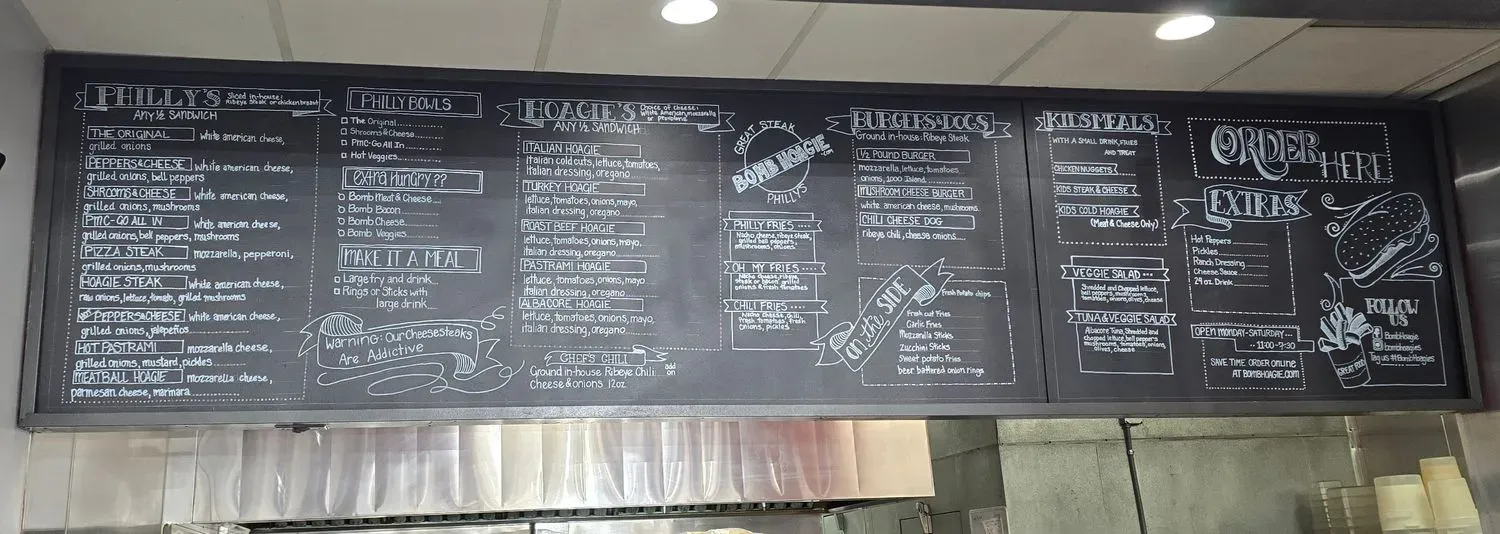 PHILLY'S
Sliced in-house:
Ribeye Steak or chicken breast
ANY ½ SANDWICH
THE ORIGINAL white american cheese,
grilled onions
PEPPERS&CHEESE white american cheese,
grilled onions, bell peppers
SHROOMS & CHEESE white american cheese,
grilled onions, mushrooms
PMC-GO ALL IN white american cheese,
grilled onions, bell peppers, mushrooms
PIZZA STEAK mozzarella, pepperoni,
grilled onions, mushrooms
HOAGIE STEAK white american cheese,
raw onions, lettuce, tomato, grilled mushrooms
PEPPERS&CHEESE white american cheese,
grilled onions, jalepeños
HOT PASTRAMI mozzarella cheese,
grilled onions, mustard, pickles
MEATBALL HOAGIE mozzarella cheese,
parmesan cheese, marinara
PHILLY BOWLS
The Original
Shrooms & Cheese
PMC-Go All In
Hot Veggies
Extra Hungry??
Bomb Meat & Cheese
Bomb Bacon
Bomb Cheese
Bomb Veggies
MAKE IT A MEAL
Large fry and drink
Rings or Sticks with
large drink
Warning: Our Cheesesteaks
Are Addictive
HOAGIE'S
Choice of cheese:
White American, mozzarella
or provolone
ANY ½ SANDWICH
ITALIAN HOAGIE
Italian cold cuts, lettuce, tomatoes,
Italian dressing, oregano
TURKEY HOAGIE
lettuce, tomatoes, onions, mayo,
italian dressing, oregano
ROAST BEEF HOAGIE
lettuce, tomatoes, onions, mayo,
italian dressing, oregano
PASTRAMI HOAGIE
lettuce, tomatoes, onions, mayo
italian dressing, oregano
ALBACORE HOAGIE
lettuce, tomatoes, onions, mayo,
italian dressing, oregano
CHEF'S CHILI
add on
Ground in-house Ribeye Chili
Cheese & onions 12oz
GREAT STEAK
BOMB HOAGIE .com
PHILLY'S
PHILLY FRIES
Nacho cheese, ribeye steak,
grilled bell peppers,
mushrooms, onions
OH MY FRIES
Nacho cheese, ribeye
steak or bacon, grilled
onions & fresh tomatoes
CHILI FRIES
Nacho cheese, chili,
fresh tomatoes, fresh
onions, pickles
BURGERS&DOGS
Ground in-house: Ribeye Steak
½ POUND BURGER
mozzarella, lettuce, tomatoes
onions, 1000 Island
MUSHROOM CHEESE BURGER
white american cheese, mushrooms
CHILI CHEESE DOG
ribeye chili, cheese onions
on the SIDE
Fresh Potato chips
Fresh cut Fries
Garlic Fries
Mozzarella Sticks
Zucchini Sticks
Sweet potato Fries
beer battered onion rings
KIDS MEALS
WITH A SMALL DRINK, FRIES
AND TREAT
CHICKEN NUGGETS
KIDS STEAK & CHEESE
KIDS COLD HOAGIE
(Meat & Cheese Only)
VEGGIE SALAD
Shredded and Chopped lettuce,
bell peppers, mushrooms,
tomatoes, onions, olives, cheese
TUNA & VEGGIE SALAD
Albacore Tuna, Shredded and
chopped lettuce, bell peppers
mushrooms, tomatoes, onions,
olives, cheese
ORDER HERE
EXTRAS
Hot Peppers
Pickles
Ranch Dressing
Cheese Sauce
24 oz Drink
OPEN MONDAY-SATURDAY
11:00-7:30
SAVE TIME ORDER ONLINE
AT BOMBHOAGIE.COM
GREAT FOOD
FOLLOW
US
BombHoagie
bombhoagies
Tag us ##BombHoagies